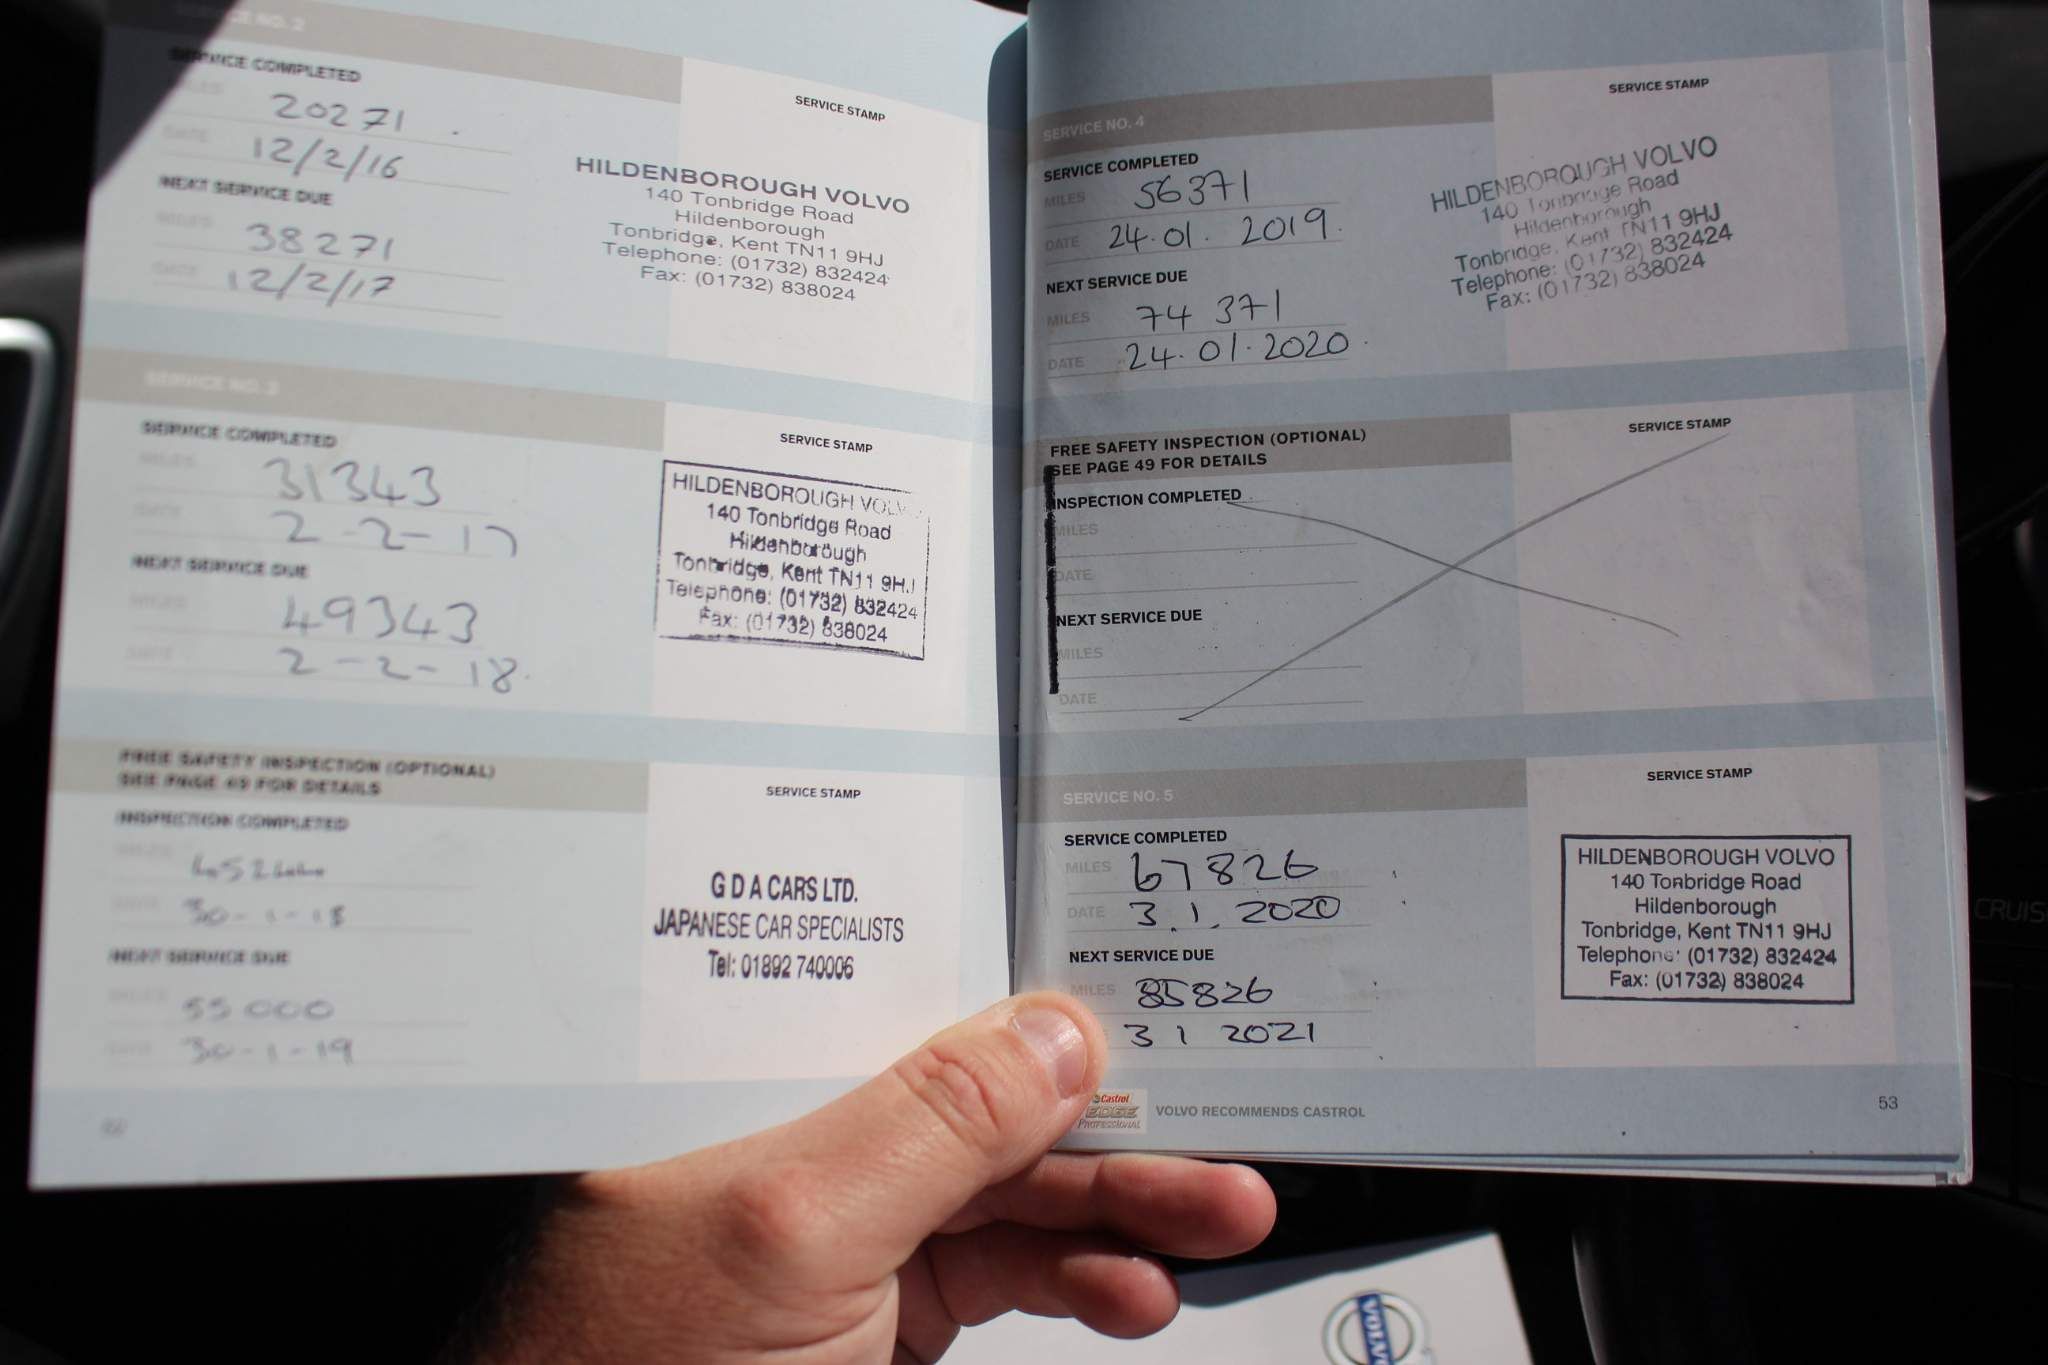 SERVICE NO. 2
SERVICE COMPLETED
MILES 20271
DATE 12/2/16
NEXT SERVICE DUE
MILES 38271
DATE 12/2/17
SERVICE STAMP
HILDENBOROUGH VOLVO
140 Tonbridge Road
Hildenborough
Tonbridge, Kent TN11 9HJ
Telephone: (01732) 832424
Fax: (01732) 838024
SERVICE NO. 3
SERVICE COMPLETED
MILES 31343
DATE 2-2-17
NEXT SERVICE DUE
MILES 49343
DATE 2-2-18
SERVICE STAMP
HILDENBOROUGH VOLVO
140 Tonbridge Road
Hildenborough
Tonbridge, Kent TN11 9HJ
Telephone: (01732) 832424
Fax: (01732) 838024
FREE SAFETY INSPECTION (OPTIONAL)
SEE PAGE 49 FOR DETAILS
INSPECTION COMPLETED
MILES
DATE 30-1-18
NEXT SERVICE DUE
MILES 55000
DATE 30-1-19
SERVICE STAMP
G D A CARS LTD.
JAPANESE CAR SPECIALISTS
Tel: 01892 740006
SERVICE NO. 4
SERVICE COMPLETED
MILES 56371
DATE 24.01.2019.
NEXT SERVICE DUE
MILES 74371
DATE 24.01.2020.
SERVICE STAMP
HILDENBOROUGH VOLVO
140 Tonbridge Road
Hildenborough
Tonbridge, Kent TN11 9HJ
Telephone: (01732) 832424
Fax: (01732) 838024
FREE SAFETY INSPECTION (OPTIONAL)
SEE PAGE 49 FOR DETAILS
INSPECTION COMPLETED
MILES
DATE
NEXT SERVICE DUE
MILES
DATE
SERVICE STAMP
SERVICE NO. 5
SERVICE COMPLETED
MILES 67826
DATE 3.1.2020
NEXT SERVICE DUE
MILES 85826
3 1 2021
SERVICE STAMP
HILDENBOROUGH VOLVO
140 Tonbridge Road
Hildenborough
Tonbridge, Kent TN11 9HJ
Telephone: (01732) 832424
Fax: (01732) 838024
Castrol
EDGE
PROFESSIONAL
VOLVO RECOMMENDS CASTROL
53
CRUIS
VOLVO